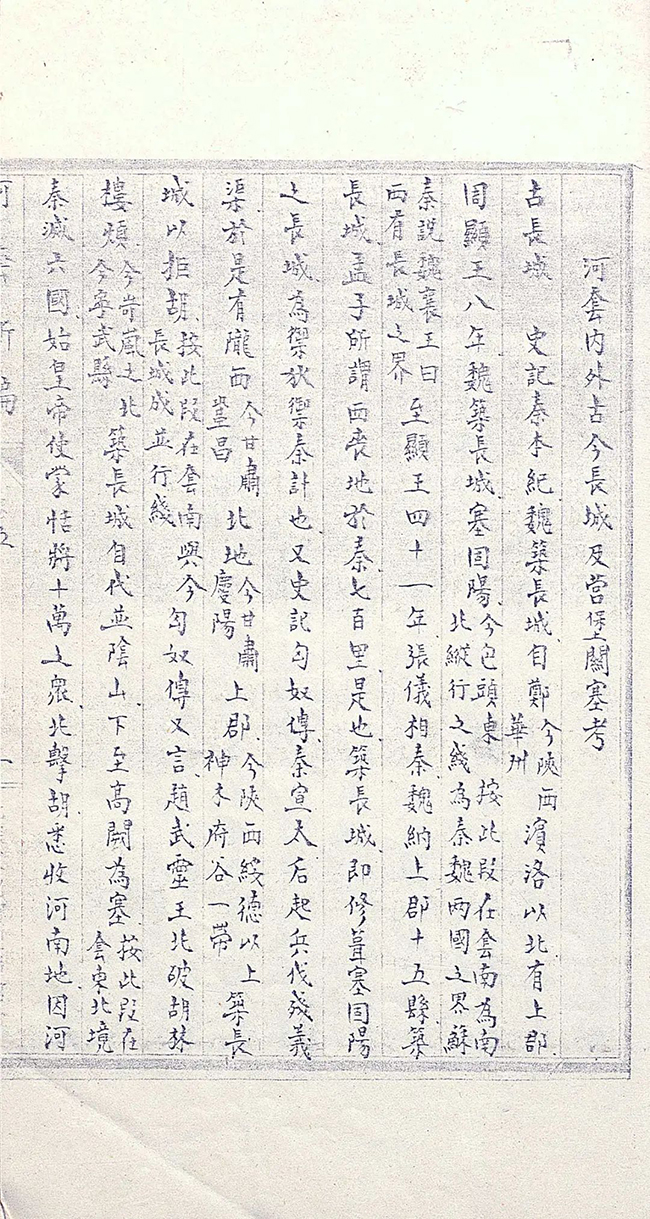 河套內外古今長城及營堡關塞考
古長城　史記秦本紀魏築長城自鄭今陝西華州濱洛以北有上郡
周顯王八年魏築長城塞固陽今包頭東　按此段在套南為南北縱行之綫為秦魏兩國之界蘇
秦說魏襄王曰西有長城之界至顯王四十一年張儀相秦魏納上郡十五縣築
長城孟子所謂西喪地於秦七百里是也築長城即修葺塞固陽
之長城為禦狄禦秦計也又史記匈奴傳秦宣太后起兵伐殘義
渠於是有隴西今甘肅鞏昌北地今甘肅慶陽上郡今陝西綏德以上神木府谷一帶築長
城以拒胡按此段在套南與今長城成並行綫匈奴傳又言趙武靈王北破胡林
樓煩今岢嵐之北今寧武縣築長城自代並陰山下至高闕為塞按此段在套東北境
秦滅六國始皇帝使蒙恬將十萬之眾北擊胡悉收河南地因河